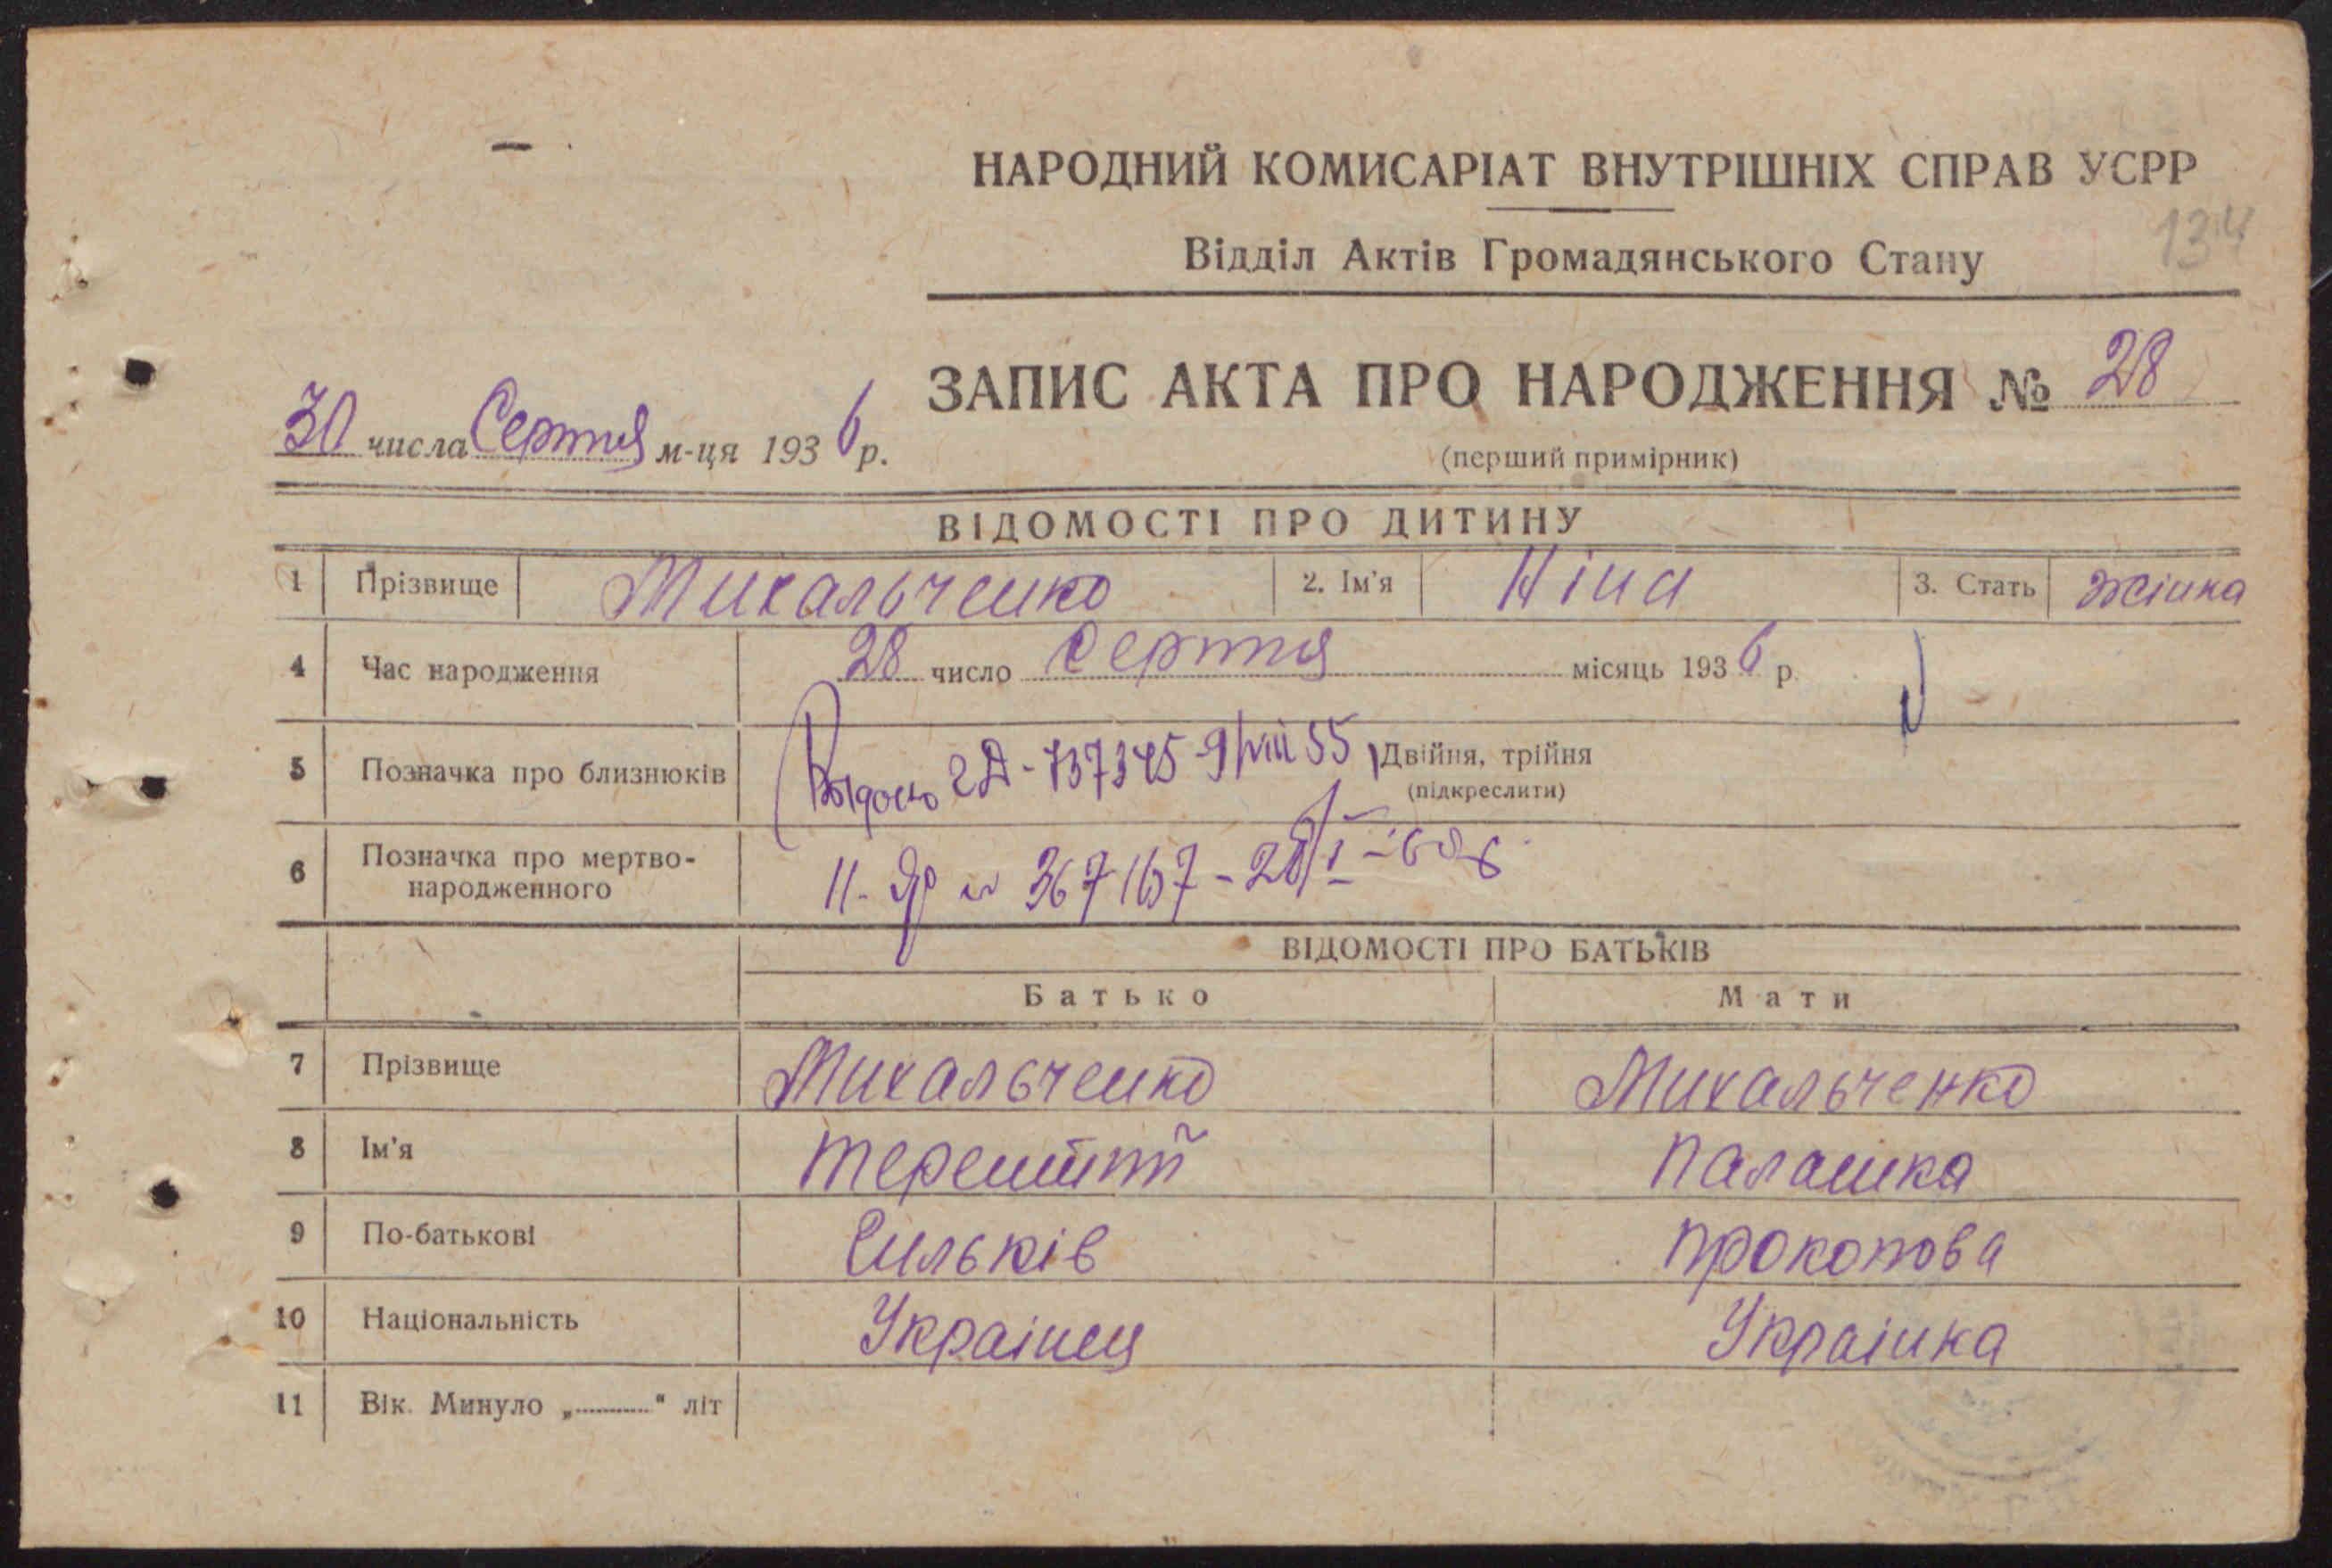 НАРОДНИЙ КОМИСАРІАТ ВНУТРІШНІХ СПРАВ УСРР
134
Відділ Актів Громадянського Стану
ЗАПИС АКТА ПРО НАРОДЖЕННЯ № 28
30 числа Серпня м-ця 1936 р.
(перший примірник)
ВІДОМОСТІ ПРО ДИТИНУ
1 Прізвище Михальченко 2. Ім'я Ніна 3. Стать жінка
4 Час народження 28 число Серпня місяць 1936 р.
5 Позначка про близнюків 737345 9/VIII 55 Двійня, трійня
(підкреслити)
6 Позначка про мертво-
народженного 367167 - 28/I
ВІДОМОСТІ ПРО БАТЬКІВ
Батько Мати
7 Прізвище Михальченко Михальченко
8 Ім'я Палашка
9 По-батькові Сильків Прокопова
10 Національність Украінец Украінка
11 Вік. Минуло „ “ літ